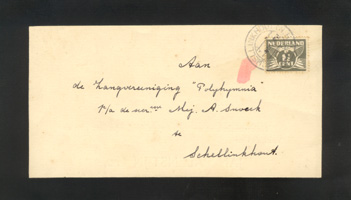 NEDERLAND
1½
CENT
Aan
de Zangvereeniging "Polyhymnia"
p/a de
Mej. A.
te
Schellinkhout.